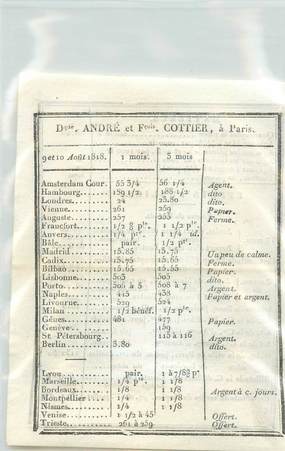 Dque. ANDRÉ et Fçois. COTTIER, à Paris.
9 et 10 Août 1818. 1 mois. 3 mois.
Amsterdam Cour. 55 3/4 56 1/4 Agent.
Hambourg 189 1/2 188 1/2 dito.
Londres 24 23.80 dito.
Vienne 261 259 Papier.
Auguste 257 255 Ferme.
Francfort 1/2 pte. 1 1/2 pte.
Anvers 1/4 pte. 1 1/4 id.
Bâle pair. 1/2 pte.
Madrid 15.85 15.75 Un peu de calme.
Cadix 15.65 Ferme.
Bilbao 15.65 15.55 Papier.
Lisbonne 565 565 dito.
Porto à 5 568 à 7 Argent.
Naples 415 Papier et argent.
Livourne 529 524
Milan 1/2 bénéf. 1/2 pte.
Gênes 481 477 Papier.
Genève 159
St. Pétersbourg 113 à 116 Argent.
Berlin 3.80 dito.
Lyon pair. 1 à 7/8 pte
Marseille 1/4 pte. 1 1/8
Bordeaux 1/8 1 1/8 Argent à c. jours.
Montpellier 1/4 1 1/8
Nismes 1/4 1 1/8
Venise 1 1/2 à 45 Offert.
Trieste 261 à 259 Offert.